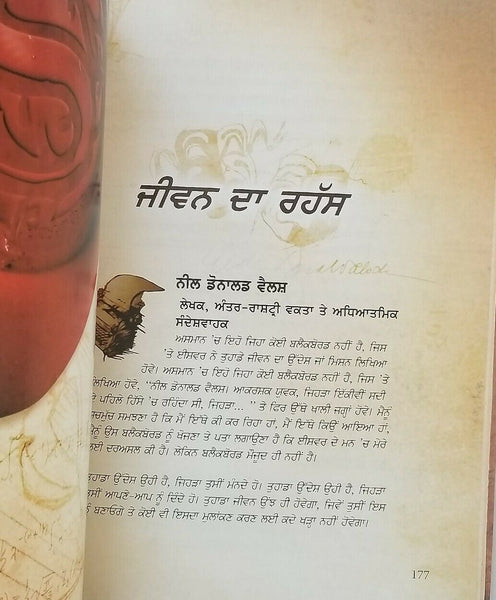 ਜੀਵਨ ਦਾ ਰਹੱਸ
ਨੀਲ ਡੋਨਾਲਡ ਵੈਲਸ਼
ਲੇਖਕ, ਅੰਤਰ-ਰਾਸ਼ਟ੍ਰੀ ਵਕਤਾ ਤੇ ਅਧਿਆਤਮਿਕ
ਸੰਦੇਸ਼ਵਾਹਕ
ਅਸਮਾਨ 'ਚ ਇਹੋ ਜਿਹਾ ਕੋਈ ਬਲੈਕਬੋਰਡ ਨਹੀਂ ਹੈ, ਜਿਸ
'ਤੇ ਈਸ਼ਵਰ ਨੇ ਤੁਹਾਡੇ ਜੀਵਨ ਦਾ ਉੱਦੇਸ਼ ਜਾਂ ਮਿਸ਼ਨ ਲਿਖਿਆ
ਹੋਵੇ। ਅਸਮਾਨ 'ਚ ਇਹੋ ਜਿਹਾ ਕੋਈ ਬਲੈਕਬੋਰਡ ਨਹੀਂ ਹੈ, ਜਿਸ 'ਤੇ
ਲਿਖਿਆ ਹੋਵੇ, "ਨੀਲ ਡੋਨਾਲਡ ਵੈਲਸ਼। ਆਕਰਸ਼ਕ ਯੁਵਕ, ਜਿਹੜਾ ਇੱਕੀਵੀਂ ਸਦੀ
ਦੇ ਪਹਿਲੇ ਹਿੱਸੇ 'ਚ ਰਹਿੰਦਾ ਸੀ, ਜਿਹੜਾ... " ਤੇ ਫਿਰ ਉੱਥੇ ਖਾਲੀ ਜਗ੍ਹਾ ਹੋਵੇ। ਮੈਨੂੰ
ਸਚਮੁੱਚ ਸਮਝਣਾ ਹੈ ਕਿ ਮੈਂ ਇੱਥੇ ਕੀ ਕਰ ਰਿਹਾ ਹਾਂ, ਮੈਂ ਇੱਥੇ ਕਿਉਂ ਆਇਆ ਹਾਂ,
ਮੈਨੂੰ ਉਸ ਬਲੈਕਬੋਰਡ ਨੂੰ ਖੋਜਣਾ ਤੇ ਪਤਾ ਲਗਾਉਣਾ ਹੈ ਕਿ ਈਸ਼ਵਰ ਦੇ ਮਨ 'ਚ ਮੇਰੇ
ਲਈ ਦਰਅਸਲ ਕੀ ਹੈ। ਲੇਕਿਨ ਬਲੈਕਬੋਰਡ ਮੌਜੂਦ ਹੀ ਨਹੀਂ ਹੈ।
ਤੁਹਾਡਾ ਉੱਦੇਸ਼ ਉਹੀ ਹੈ, ਜਿਹੜਾ ਤੁਸੀਂ ਮੰਨਦੇ ਹੋ। ਤੁਹਾਡਾ ਉੱਦੇਸ਼ ਉਹੀ ਹੈ, ਜਿਹੜਾ
ਤੁਸੀਂ ਆਪਣੇ-ਆਪ ਨੂੰ ਦਿੰਦੇ ਹੋ। ਤੁਹਾਡਾ ਜੀਵਨ ਉਂਝ ਹੀ ਹੋਵੇਗਾ, ਜਿਵੇਂ ਤੁਸੀਂ ਇਸ
ਨੂੰ ਬਣਾਓਗੇ ਤੇ ਕੋਈ ਵੀ ਇਸਦਾ ਮੁਲਾਂਕਣ ਕਰਣ ਲਈ ਕਦੇ ਖੜਾ ਨਹੀਂ ਹੋਵੇਗਾ।
177